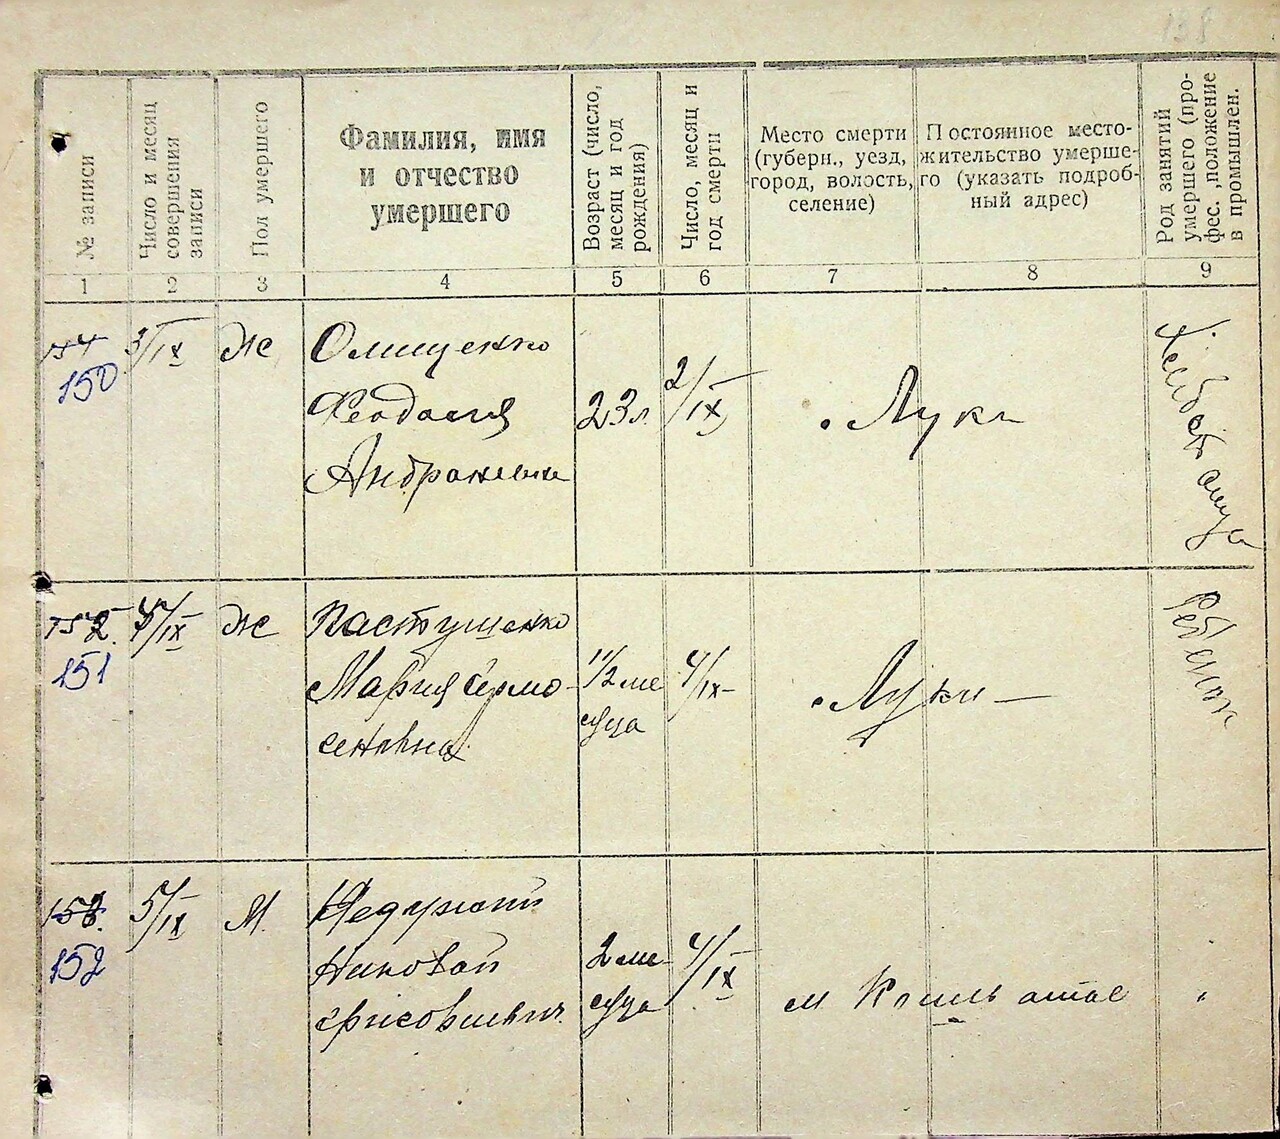 № записи
Число и месяц
совершения
записи
Пол умершего
Фамилия, имя
и отчество
умершего
Возраст (число,
месяц и год
рождения)
Число, месяц и
год смерти
Место смерти
(губерн., уезд,
город, волость,
селение)
Постоянное место-
жительство умерше-
го (указать подроб-
ный адрес)
Род занятий
умершего (про-
фес., положение
в промышлен.
1 2 3 4 5 6 7 8 9
150
3/IX
Ж
Онищенко
Феодосия
Андроновна
23 л.
2/IX
Лука
151
4/IX
Ж
Пастушенко
Мария
1 1/2 ме
сяца
4/IX
Луки
Ребенок
152
5/IX
М.
Недужий
Николай
2 ме
сяца
4/IX
м
"